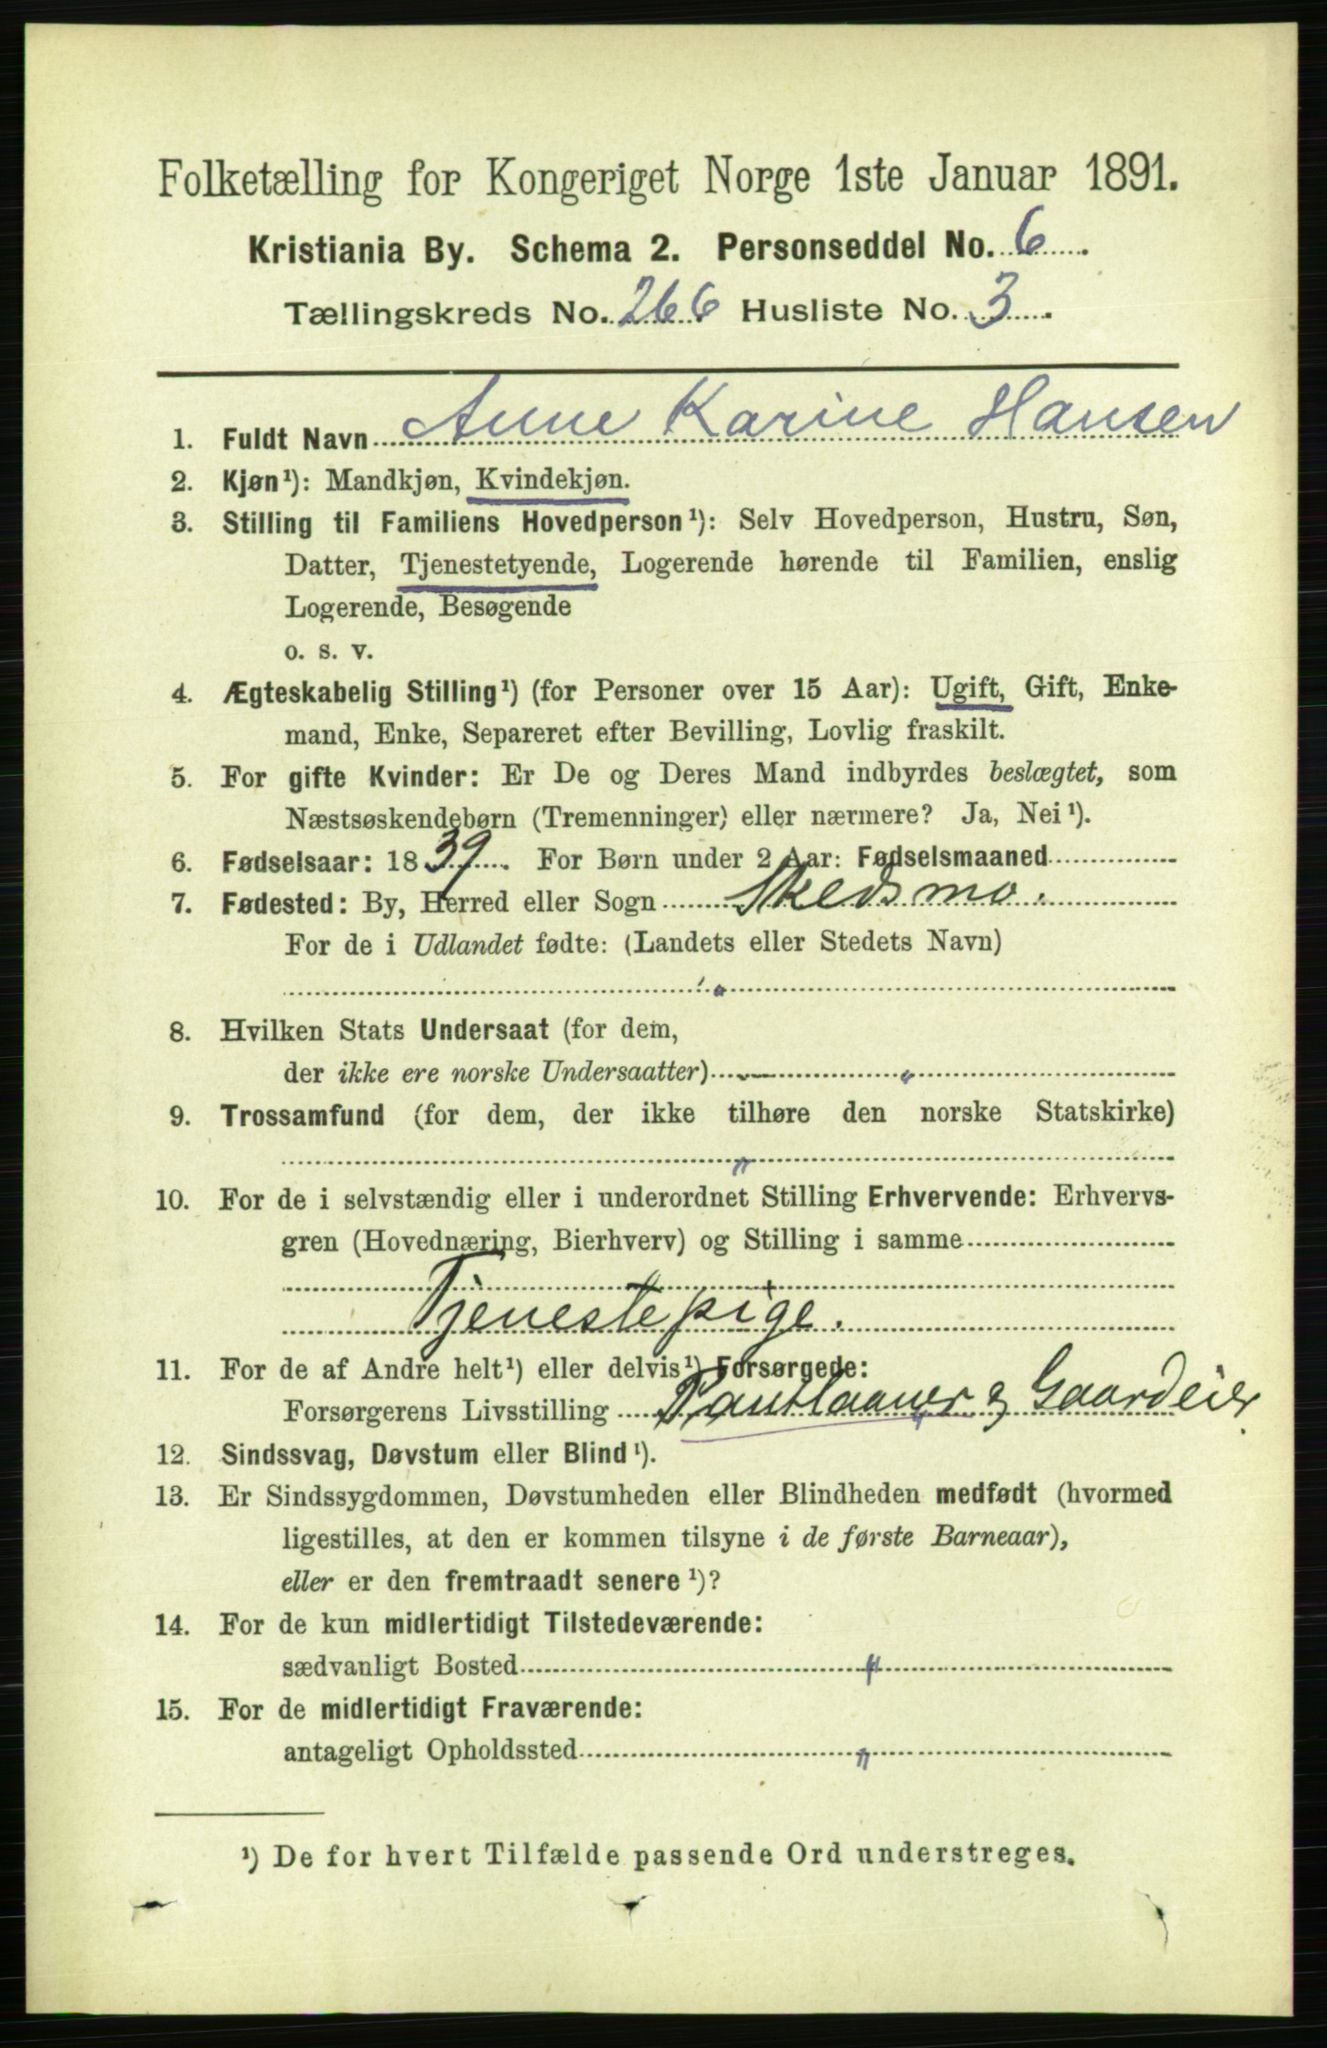 Folketælling for Kongeriget Norge 1ste Januar 1891.
Kristiania By. Schema 2. Personseddel No. 6.
Tællingskreds No. 266 Husliste No. 3.
1. Fuldt Navn Anne Karine Hansen
2. Kjøn¹): Mandkjøn, Kvindekjøn.
3. Stilling til Familiens Hovedperson¹): Selv Hovedperson, Hustru, Søn,
Datter, Tjenestetyende, Logerende hørende til Familien, enslig
Logerende, Besøgende
o. s. v.
4. Ægteskabelig Stilling¹) (for Personer over 15 Aar): Ugift, Gift, Enke-
mand, Enke, Separeret efter Bevilling, Lovlig fraskilt.
5. For gifte Kvinder: Er De og Deres Mand indbyrdes beslægtet, som
Næstsøskendebørn (Tremenninger) eller nærmere? Ja, Nei¹).
6. Fødselsaar: 1839. For Børn under 2 Aar: Fødselsmaaned
7. Fødested: By, Herred eller Sogn Skedsmo.
For de i Udlandet fødte: (Landets eller Stedets Navn)
"
8. Hvilken Stats Undersaat (for dem,
der ikke ere norske Undersaatter) "
9. Trossamfund (for dem, der ikke tilhøre den norske Statskirke)
"
10. For de i selvstændig eller i underordnet Stilling Erhvervende: Erhvervs-
gren (Hovednæring, Bierhverv) og Stilling i samme
Tjenestepige.
11. For de af Andre helt¹) eller delvis¹) Forsørgede:
Forsørgerens Livsstilling Pantlaaner & Gaardeier.
12. Sindssvag, Døvstum eller Blind¹).
13. Er Sindssygdommen, Døvstumheden eller Blindheden medfødt (hvormed
ligestilles, at den er kommen tilsyne i de første Barneaar),
eller er den fremtraadt senere¹)?
14. For de kun midlertidigt Tilstedeværende:
sædvanligt Bosted "
15. For de midlertidigt Fraværende:
antageligt Opholdssted "
¹) De for hvert Tilfælde passende Ord understreges.